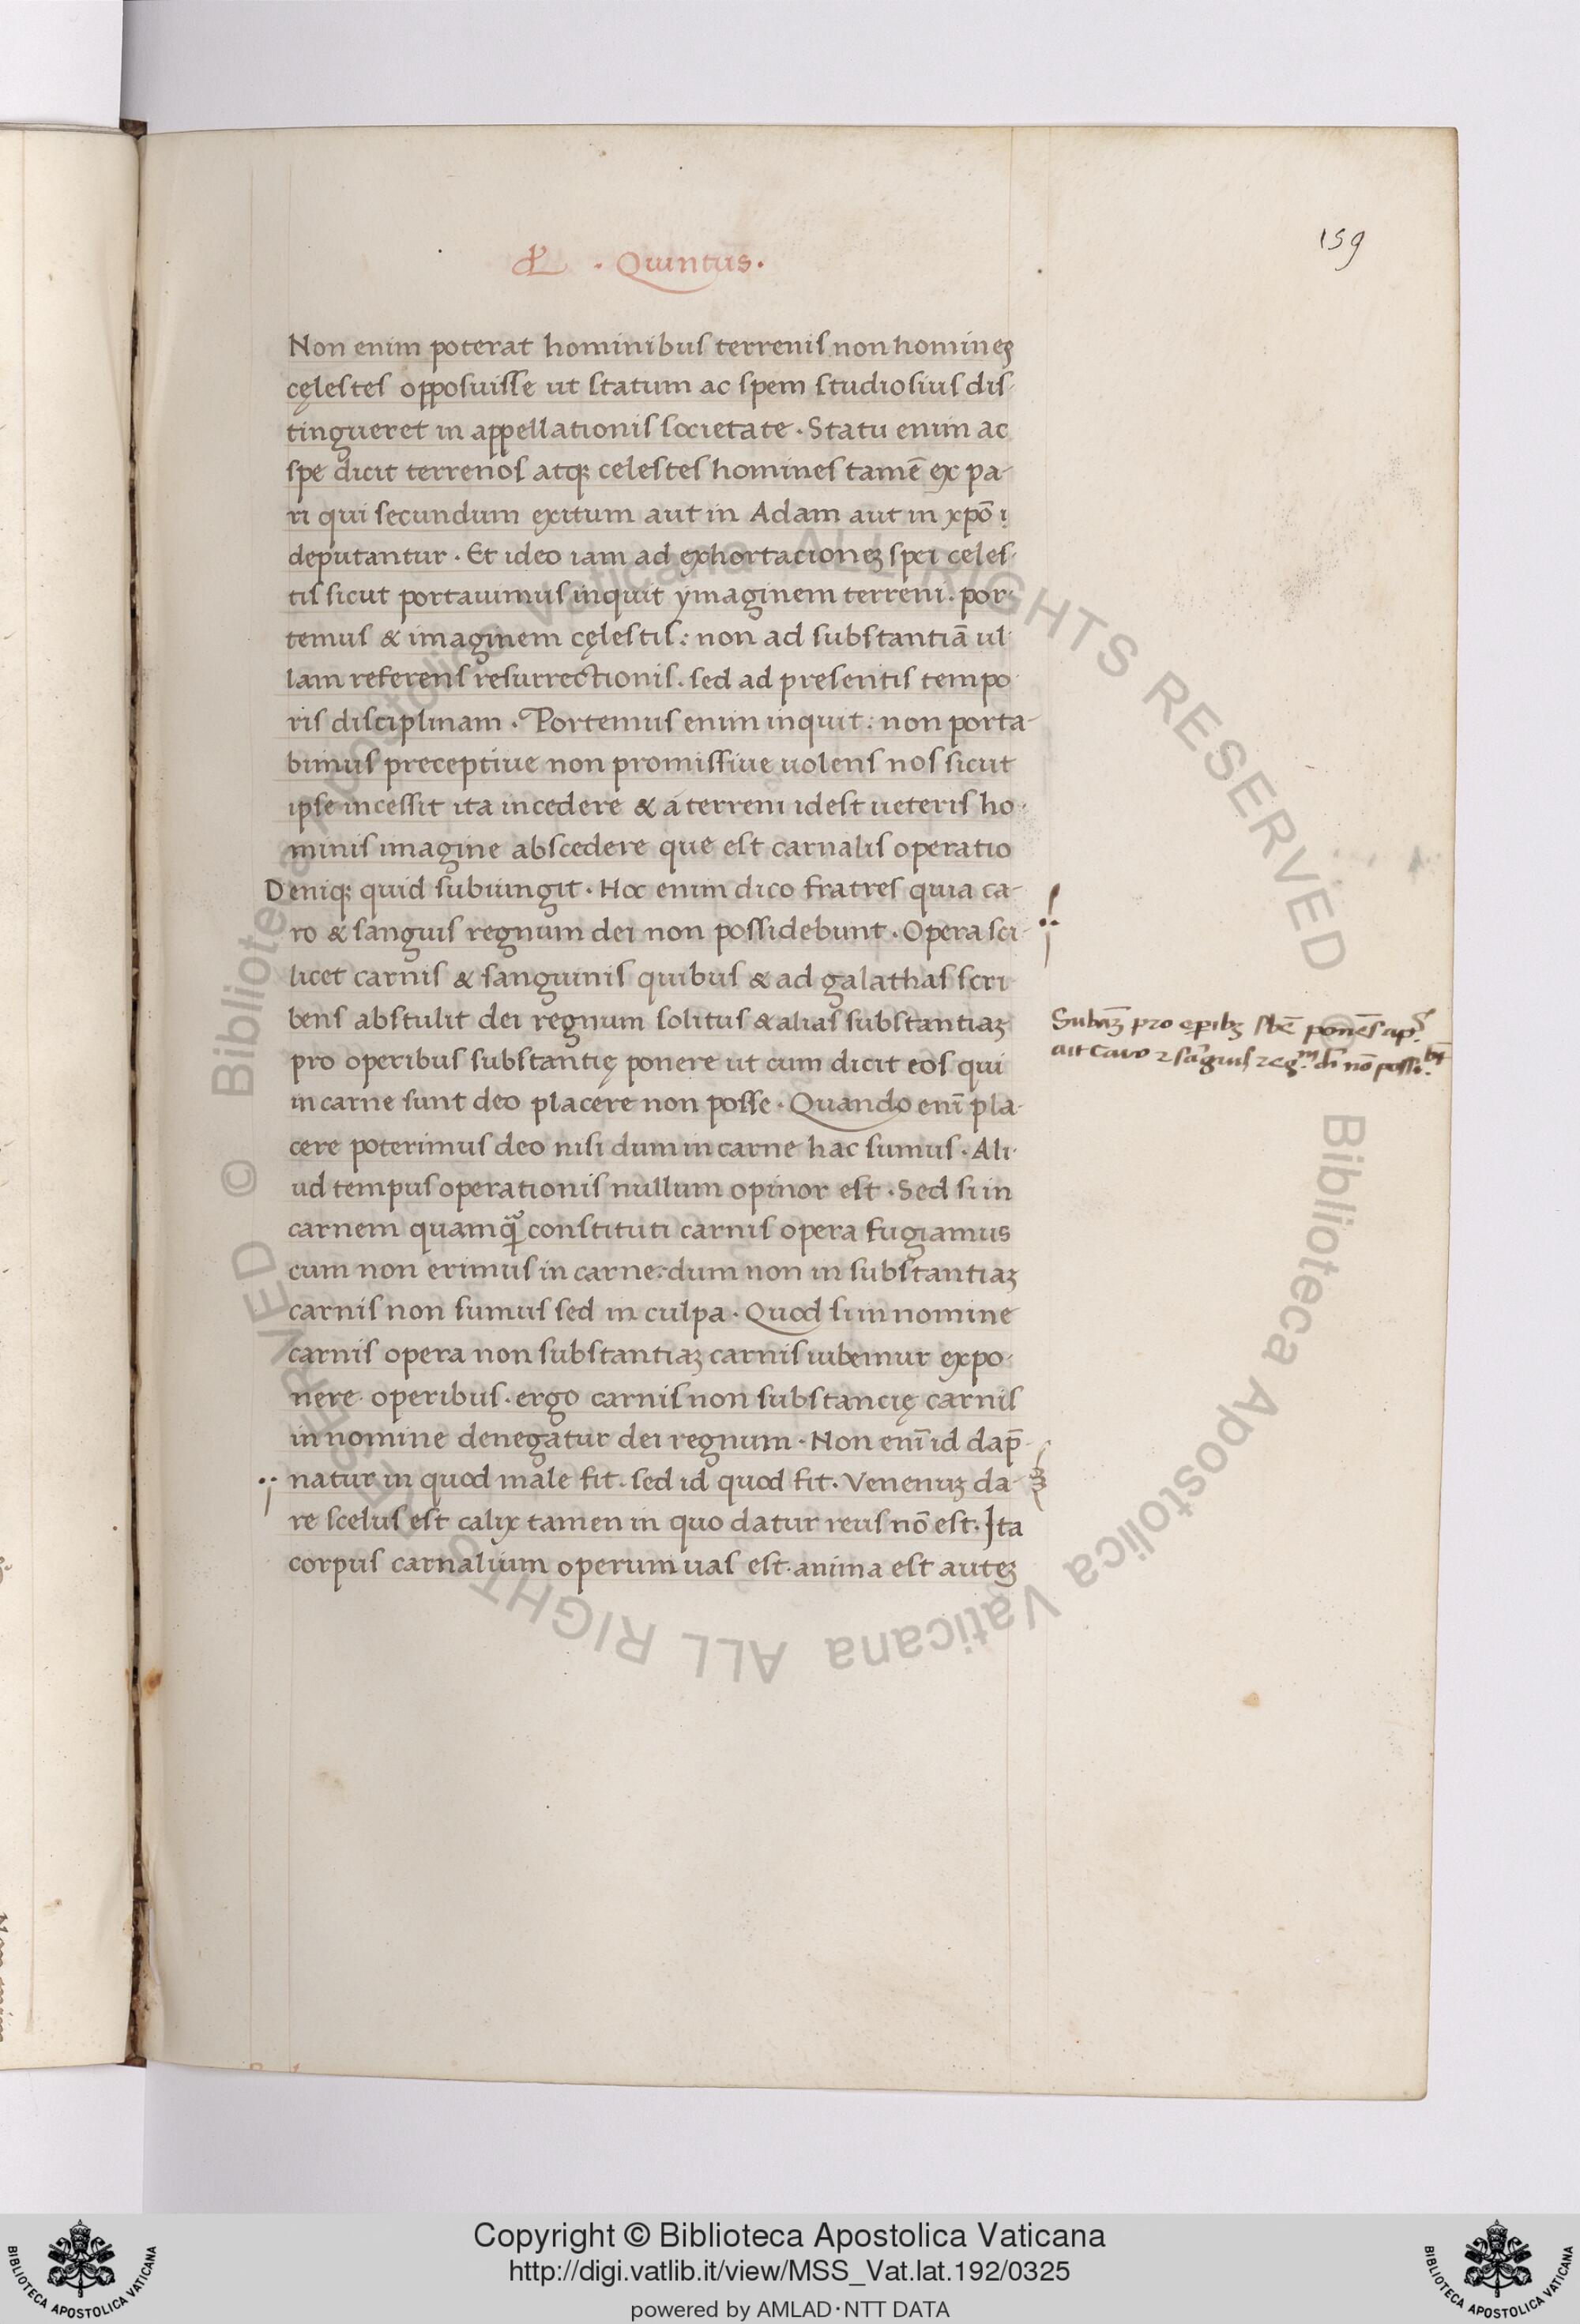 · Quintus ·
159
Non enim poterat hominibus terrenis non homines
cęlestes opposuisse ut statum ac spem studiosius dis-
tingueret in appellationis societate · Statu enim ac
spe dicit terrenos atqꝫ celestes homines tamē ex pa-
ri qui secundum exitum aut in Adam aut in xp̄o
deputantur · Et ideo iam ad exhortacioneꝫ spei celes-
tis sicut portauimus inquit ymaginem terreni . por-
temus & imaginem cęlestis : non ad substantiā ul-
lam referens resurrectionis . sed ad presentis tempo
ris disciplinam · Portemus enim inquit : non porta-
bimus preceptiue non promissiue uolens nos sicut
ipse incessit ita incedere & a terreni idest ueteris ho-
minis imagine abscedere que est carnalis operatio
Deniqꝫ quid subiungit · Hoc enim dico fratres quia ca-
ro & sanguis regnum dei non possidebunt · Opera sci-
licet carnis & sanguinis quibus & ad galathas scri
bens abstulit dei regnum solitus & alias substantiaꝫ
pro operibus substantię ponere ut cum dicit eos qui
in carne sunt deo placere non posse · Quando enī pla-
cere poterimus deo nisi dum in carne hac sumus · Ali-
ud tempus operationis nullum opinor est · Sed si in
carnem quamqꝫ constituti carnis opera fugiamus
cum non erimus in carne : dum non in substantiaꝫ
carnis non sumus sed in culpa · Quod si in nomine
carnis opera non substantiaꝫ carnis iubemur expo-
nere · operibus · ergo carnis non substancię carnis
in nomine denegatur dei regnum · Non enī id dap̄-
natur in quod male fit . sed id quod fit . Venenuꝫ da-
re scelus est calix tamen in quo datur reus nō est · Ita
corpus carnalium operum uas est · anima est auteꝫ
pro ponēs ap
ait Caro
Copyright © Biblioteca Apostolica Vaticana
http://digi.vatlib.it/view/MSS_Vat.lat.192/0325
powered by AMLAD·NTT DATA
BIBLIOTECA APOSTOLICA VATICANA
BIBLIOTECA APOSTOLICA VATICANA
© Biblioteca Apostolica Vaticana ALL RIGHTS RESERVED
© Biblioteca Apostolica Vaticana ALL RIGHTS RESERVED